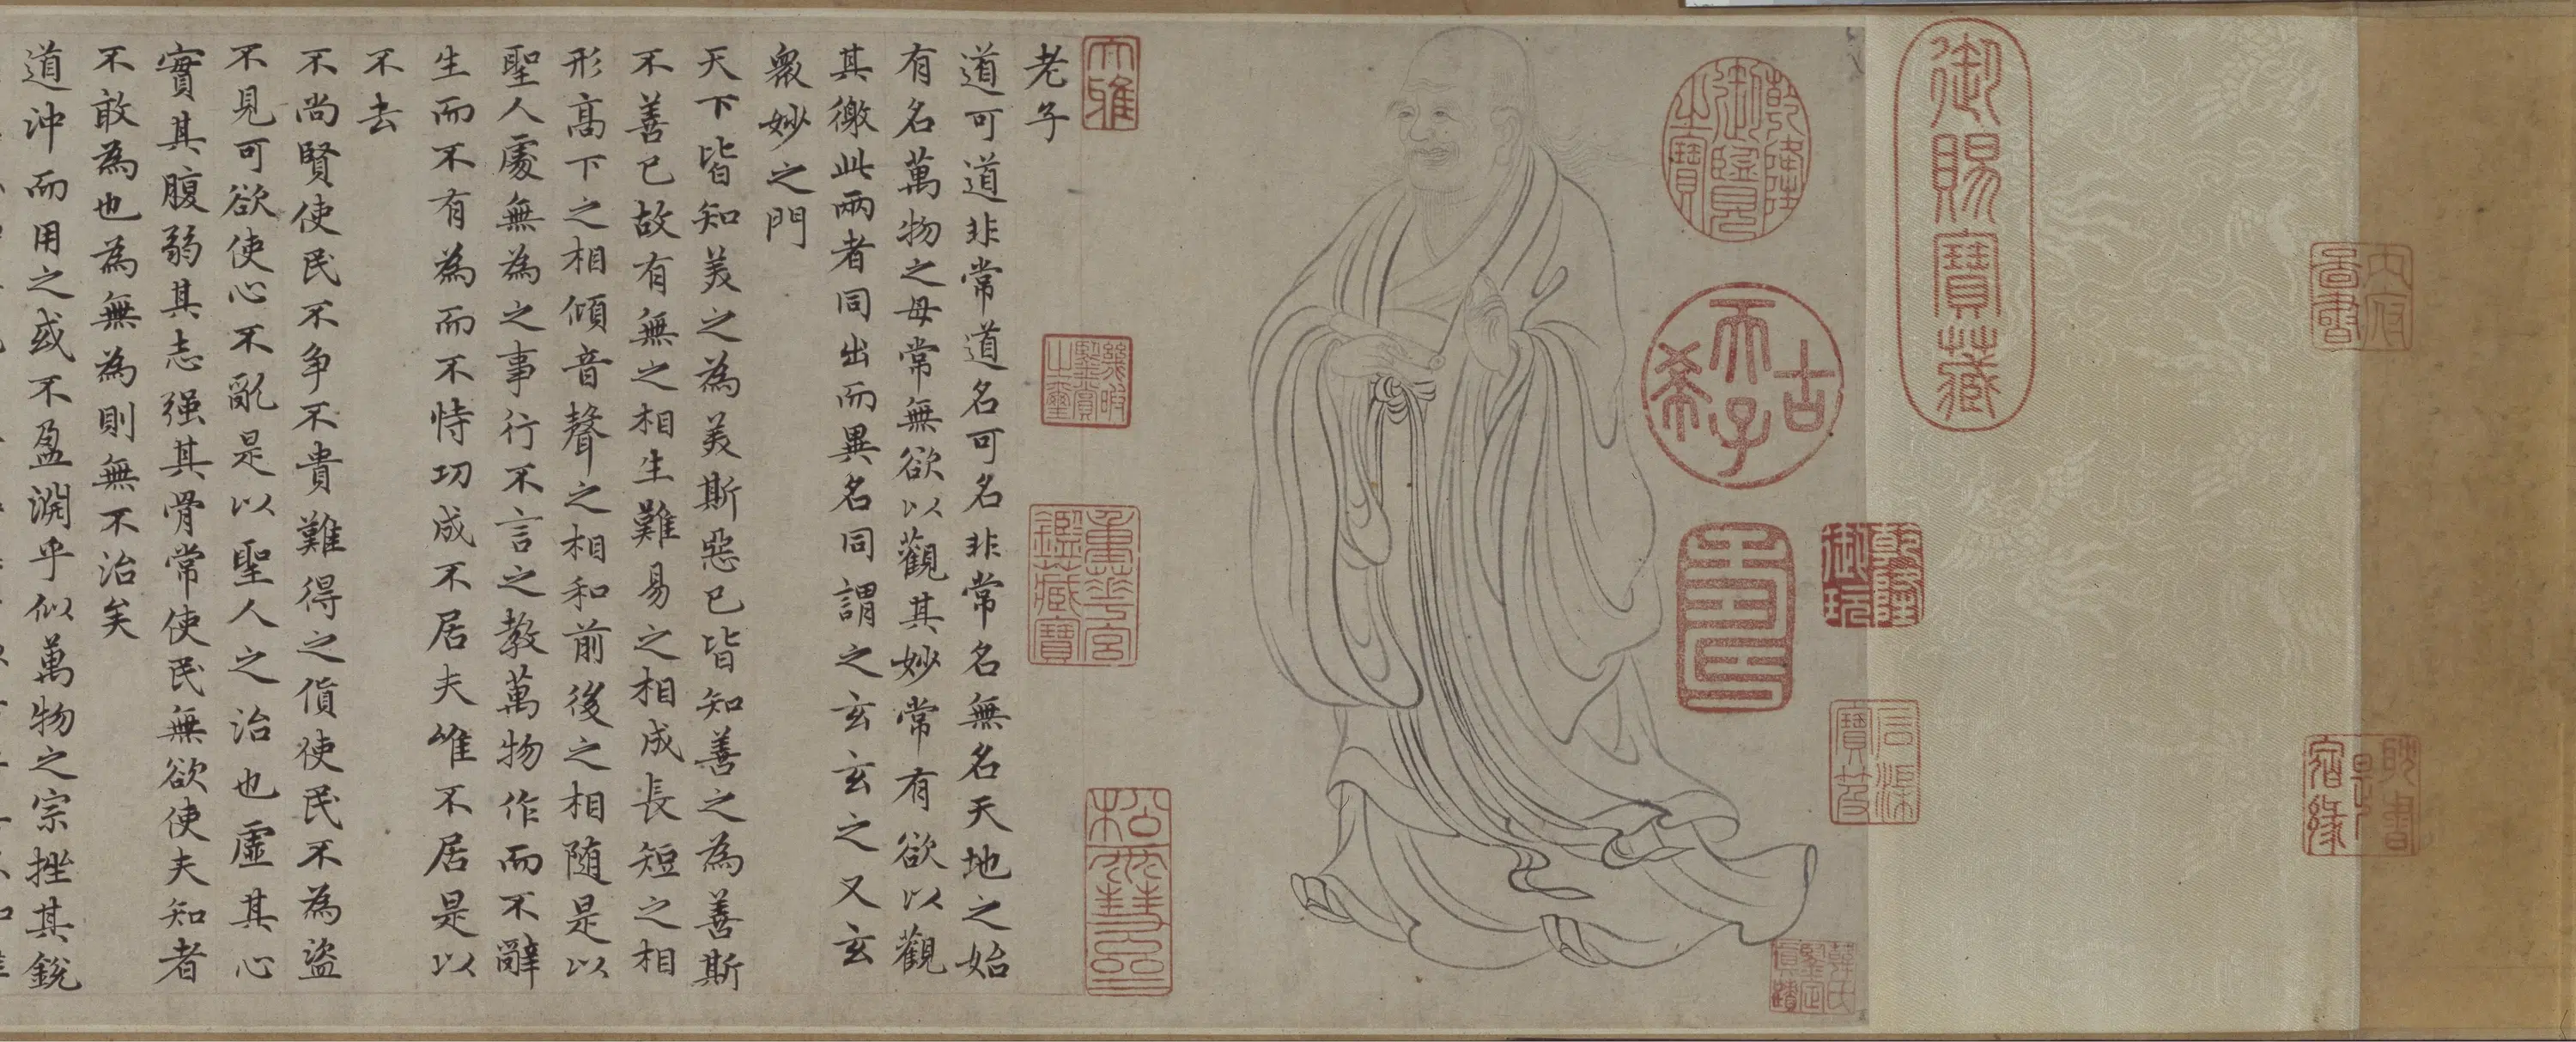 老子
道可道非常道名可名非常名無名天地之始
有名萬物之母常無欲以觀其妙常有欲以觀
其徼此兩者同出而異名同謂之玄玄之又玄
衆妙之門
天下皆知美之為美斯惡已皆知善之為善斯
不善已故有無之相生難易之相成長短之相
形高下之相傾音聲之相和前後之相随是以
聖人處無為之事行不言之教萬物作而不辭
生而不有為而不恃功成不居夫唯不居是以
不去
不尚賢使民不争不貴難得之貨使民不為盜
不見可欲使心不亂是以聖人之治也虛其心
實其腹弱其志强其骨常使民無欲使夫知者
不敢為也為無為則無不治矣
道沖而用之或不盈淵乎似萬物之宗挫其銳
御賜寶藏
乾隆御覽之寶
古希天子
壽
乾隆御玩
大雅
幾暇鑒賞之璽
重華宮鑑藏寶